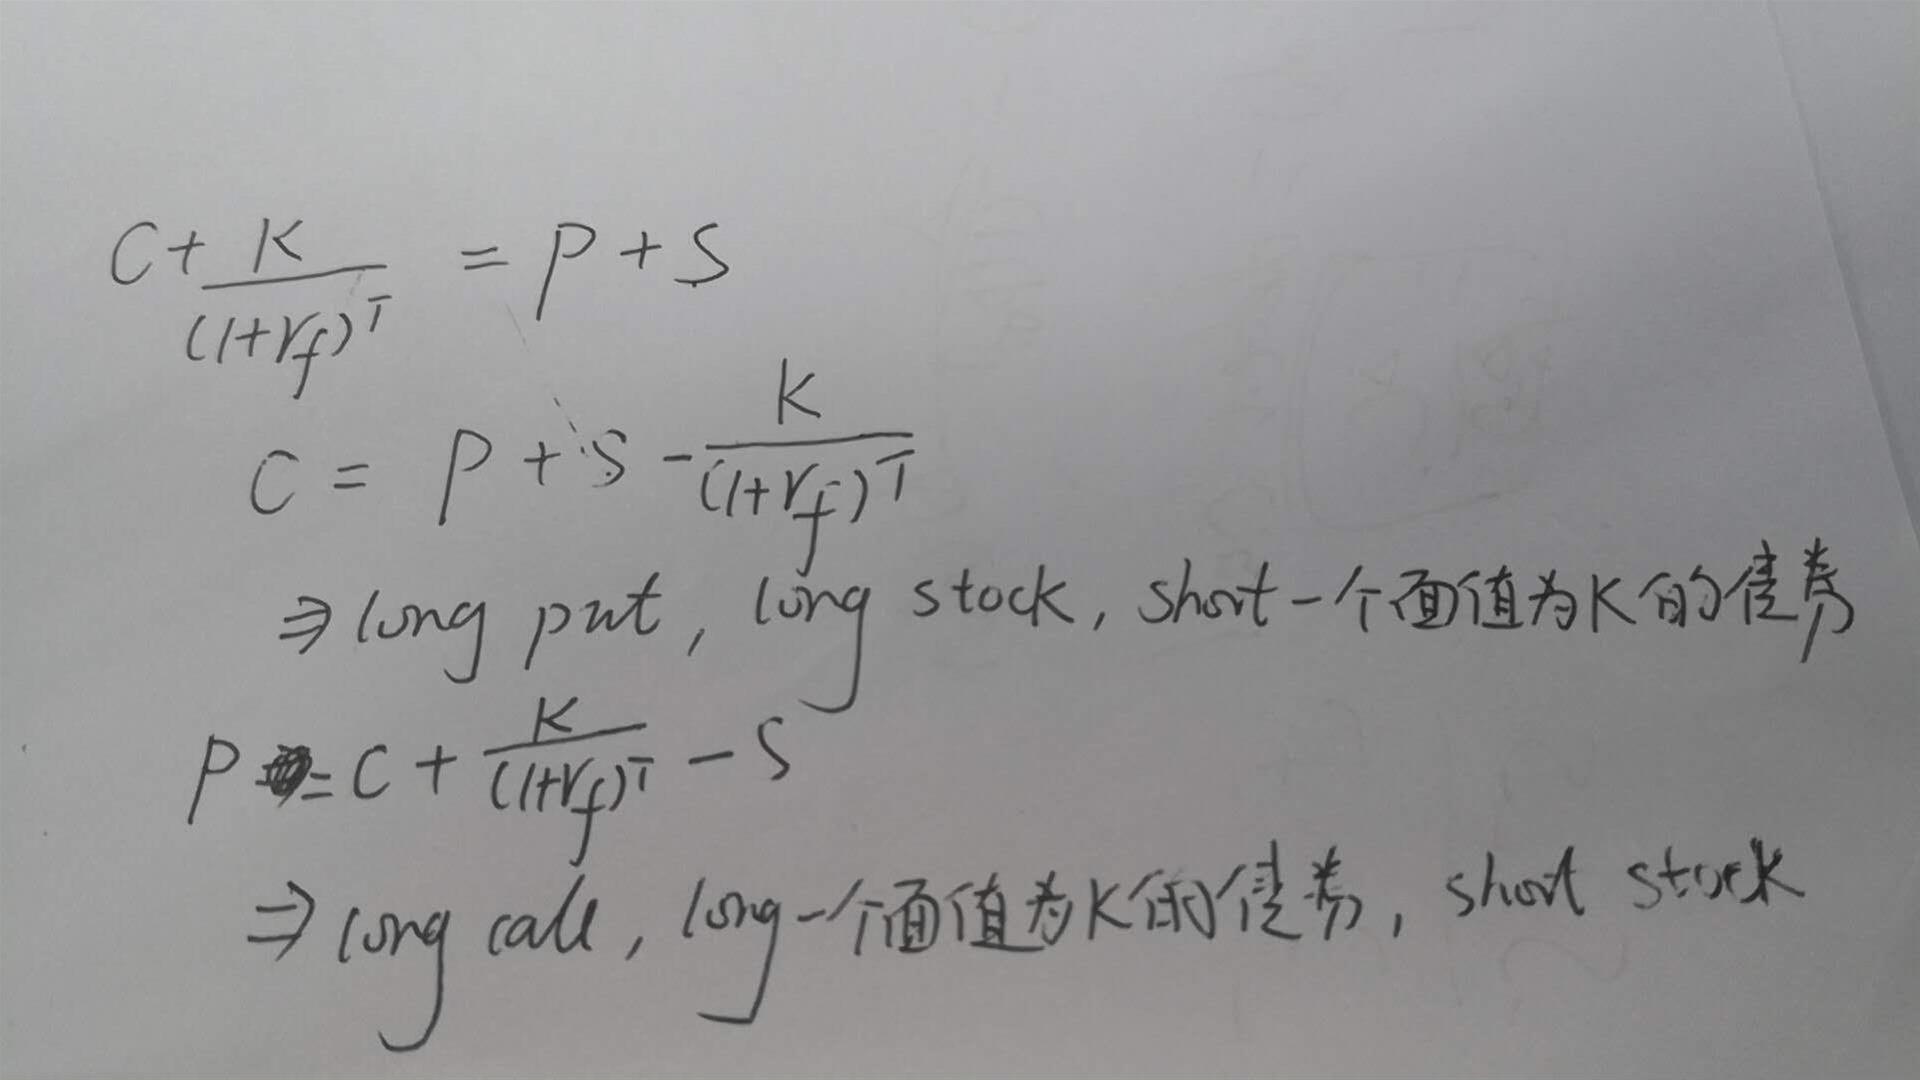 C + K/(1+rf)^T = P + S
C = P + S - K/(1+rf)^T
⇒ long put, long stock, short 一个面值为K的债券
P = C + K/(1+rf)^T - S
⇒ long call, long 一个面值为K的债券, short stock